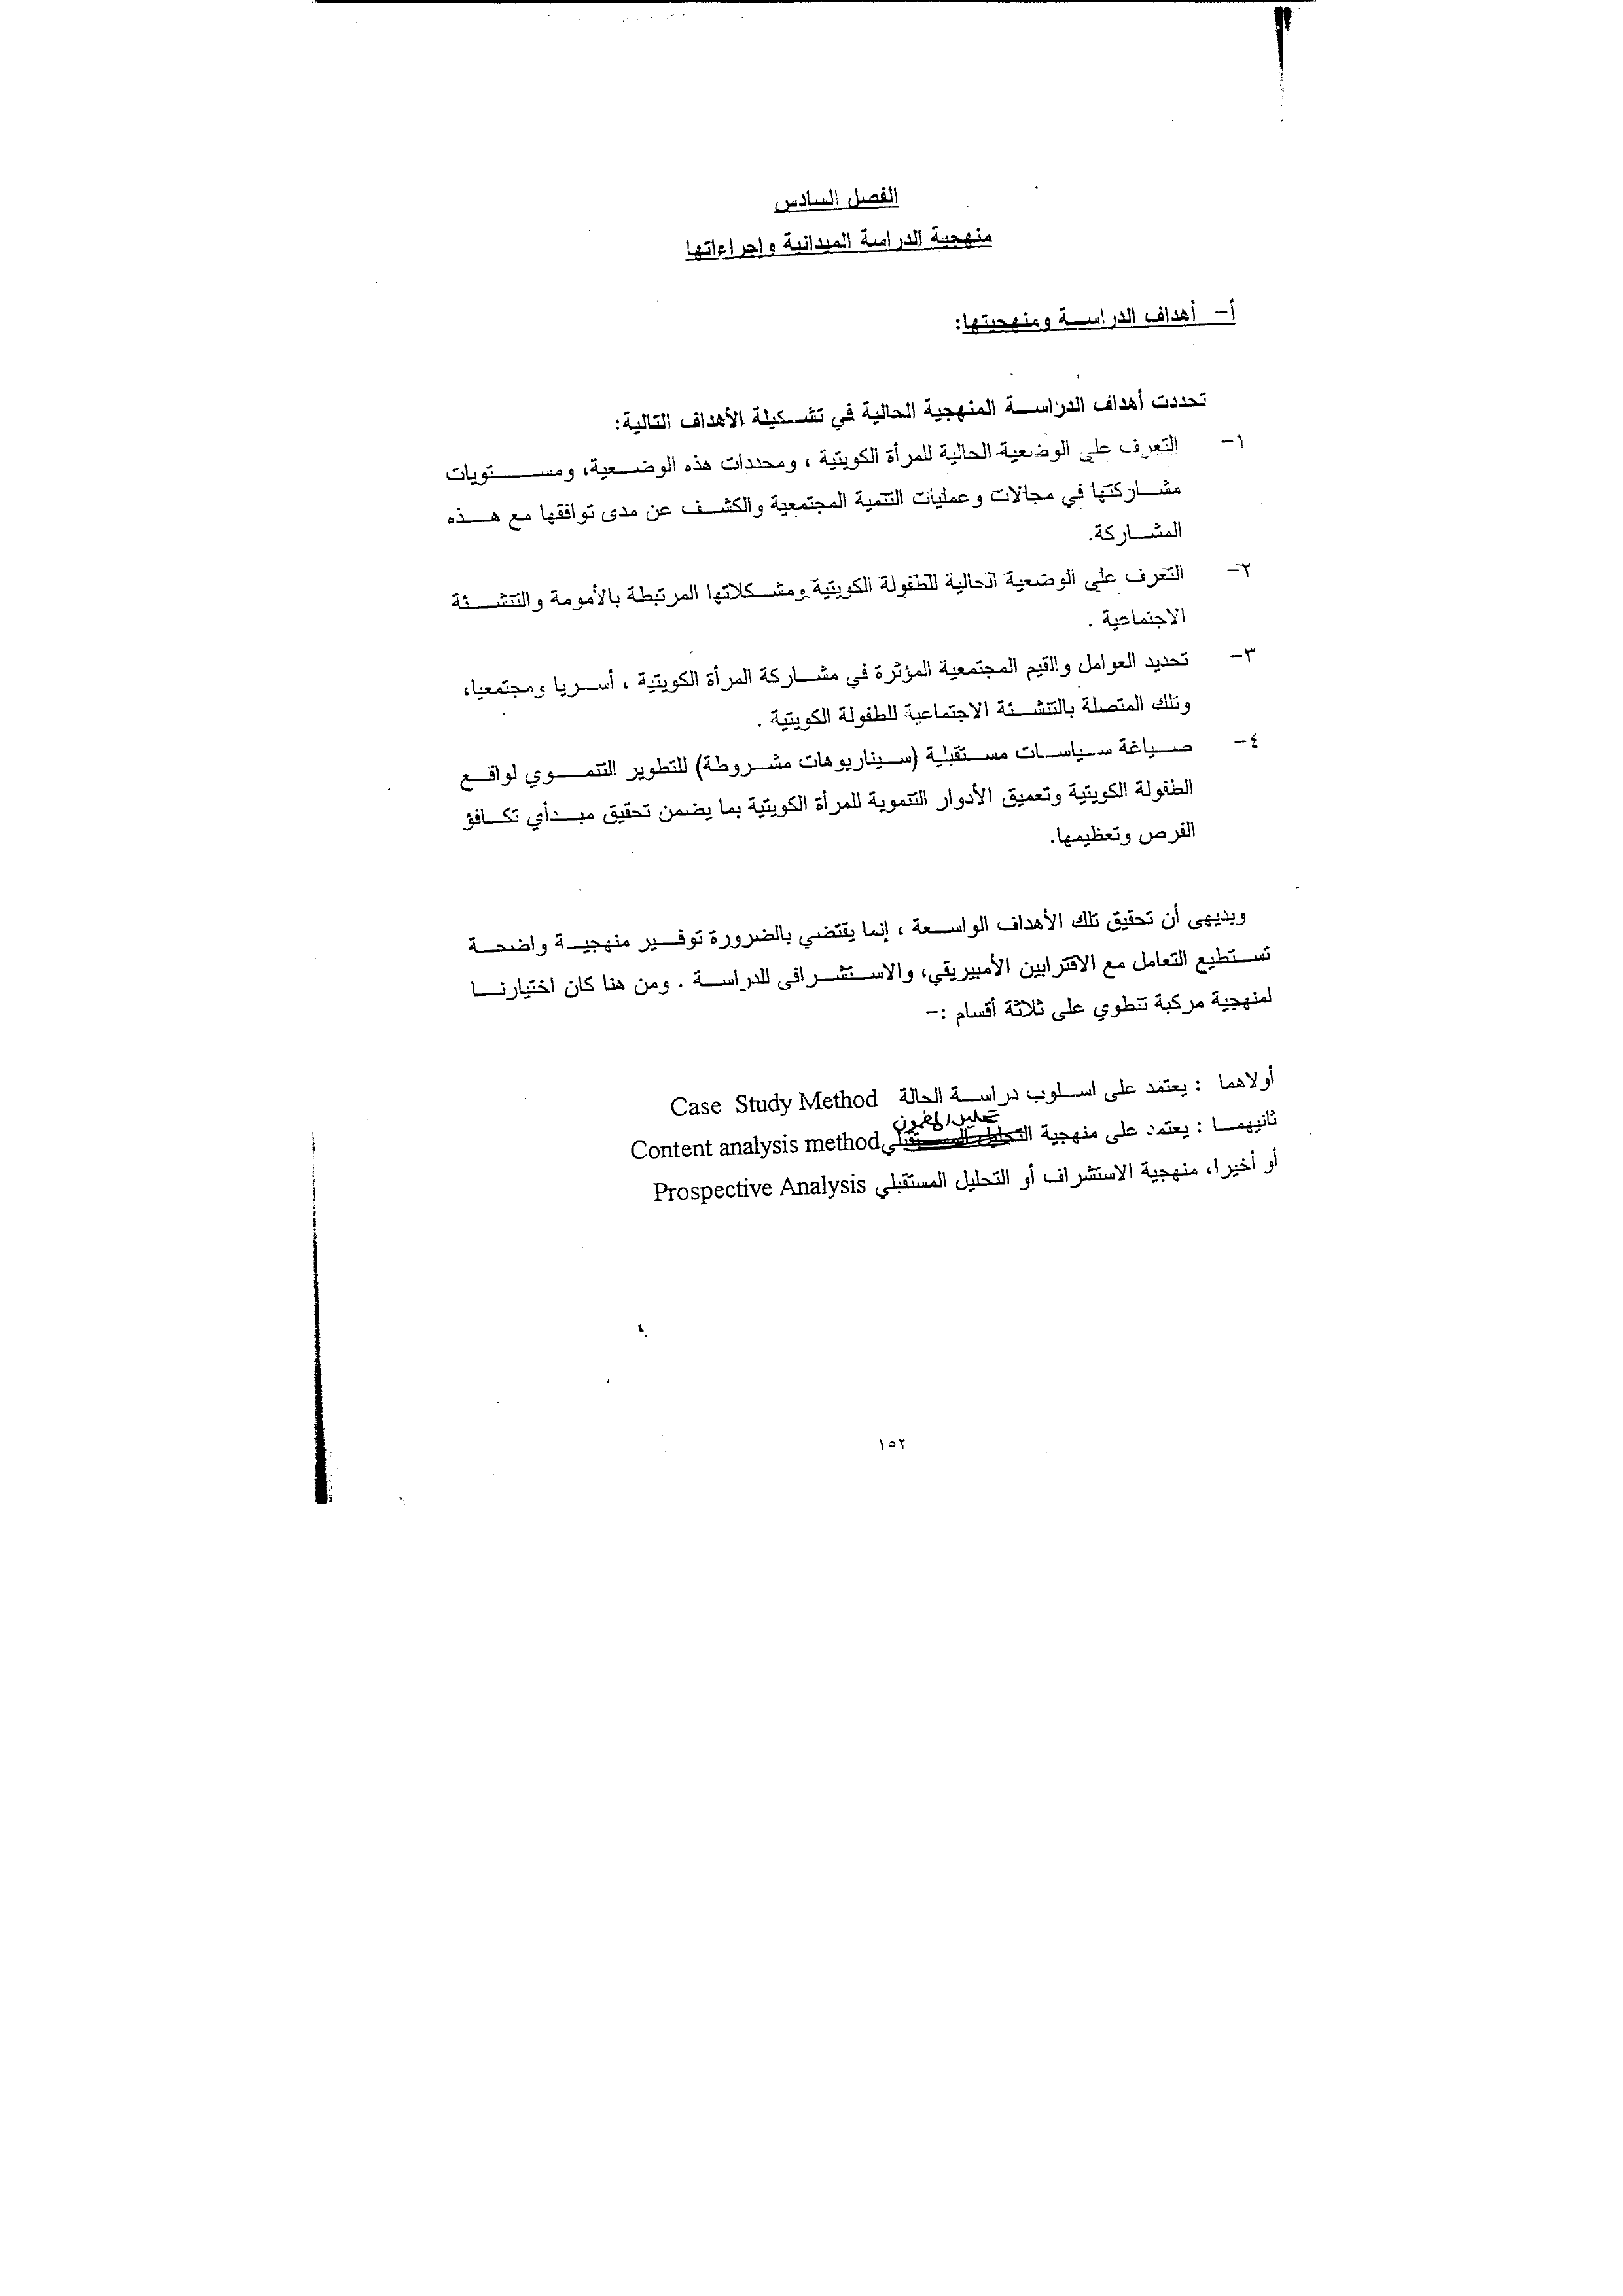 الفصل السادس
منهجية الدراسة الميدانية وإجراءاتها
أ- أهداف الدراسة ومنهجيتها:
تحددت أهداف الدراسة المنهجية الحالية في تشكيلة الأهداف التالية:
١- التعرف على الوضعية الحالية للمرأة الكويتية ، ومحددات هذه الوضعية، ومستويات
مشاركتها في مجالات وعمليات التنمية المجتمعية والكشف عن مدى توافقها مع هذه
المشاركة.
٢- التعرف على الوضعية الحالية للطفولة الكويتية ومشكلاتها المرتبطة بالأمومة والتنشئة
الاجتماعية .
٣- تحديد العوامل والقيم المجتمعية المؤثرة في مشاركة المرأة الكويتية ، أسريا ومجتمعيا،
وتلك المتصلة بالتنشئة الاجتماعية للطفولة الكويتية .
٤- صياغة سياسات مستقبلية (سيناريوهات مشروطة) للتطوير التنموي لواقع
الطفولة الكويتية وتعميق الأدوار التنموية للمرأة الكويتية بما يضمن تحقيق مبدأي تكافؤ
الفرص وتعظيمها.
وبديهى أن تحقيق تلك الأهداف الواسعة ، إنما يقتضي بالضرورة توفير منهجية واضحة
تستطيع التعامل مع الاقترابين الأمبيريقي، والاستشرافى للدراسة . ومن هنا كان اختيارنا
لمنهجية مركبة تنطوي على ثلاثة أقسام :-
أولاهما : يعتمد على اسلوب دراسة الحالة Case Study Method
تحليل المضمون
ثانيهما : يعتمد على منهجية التحليل المستقبلي Content analysis method
أو أخيرا، منهجية الاستشراف أو التحليل المستقبلي Prospective Analysis
١٥٢